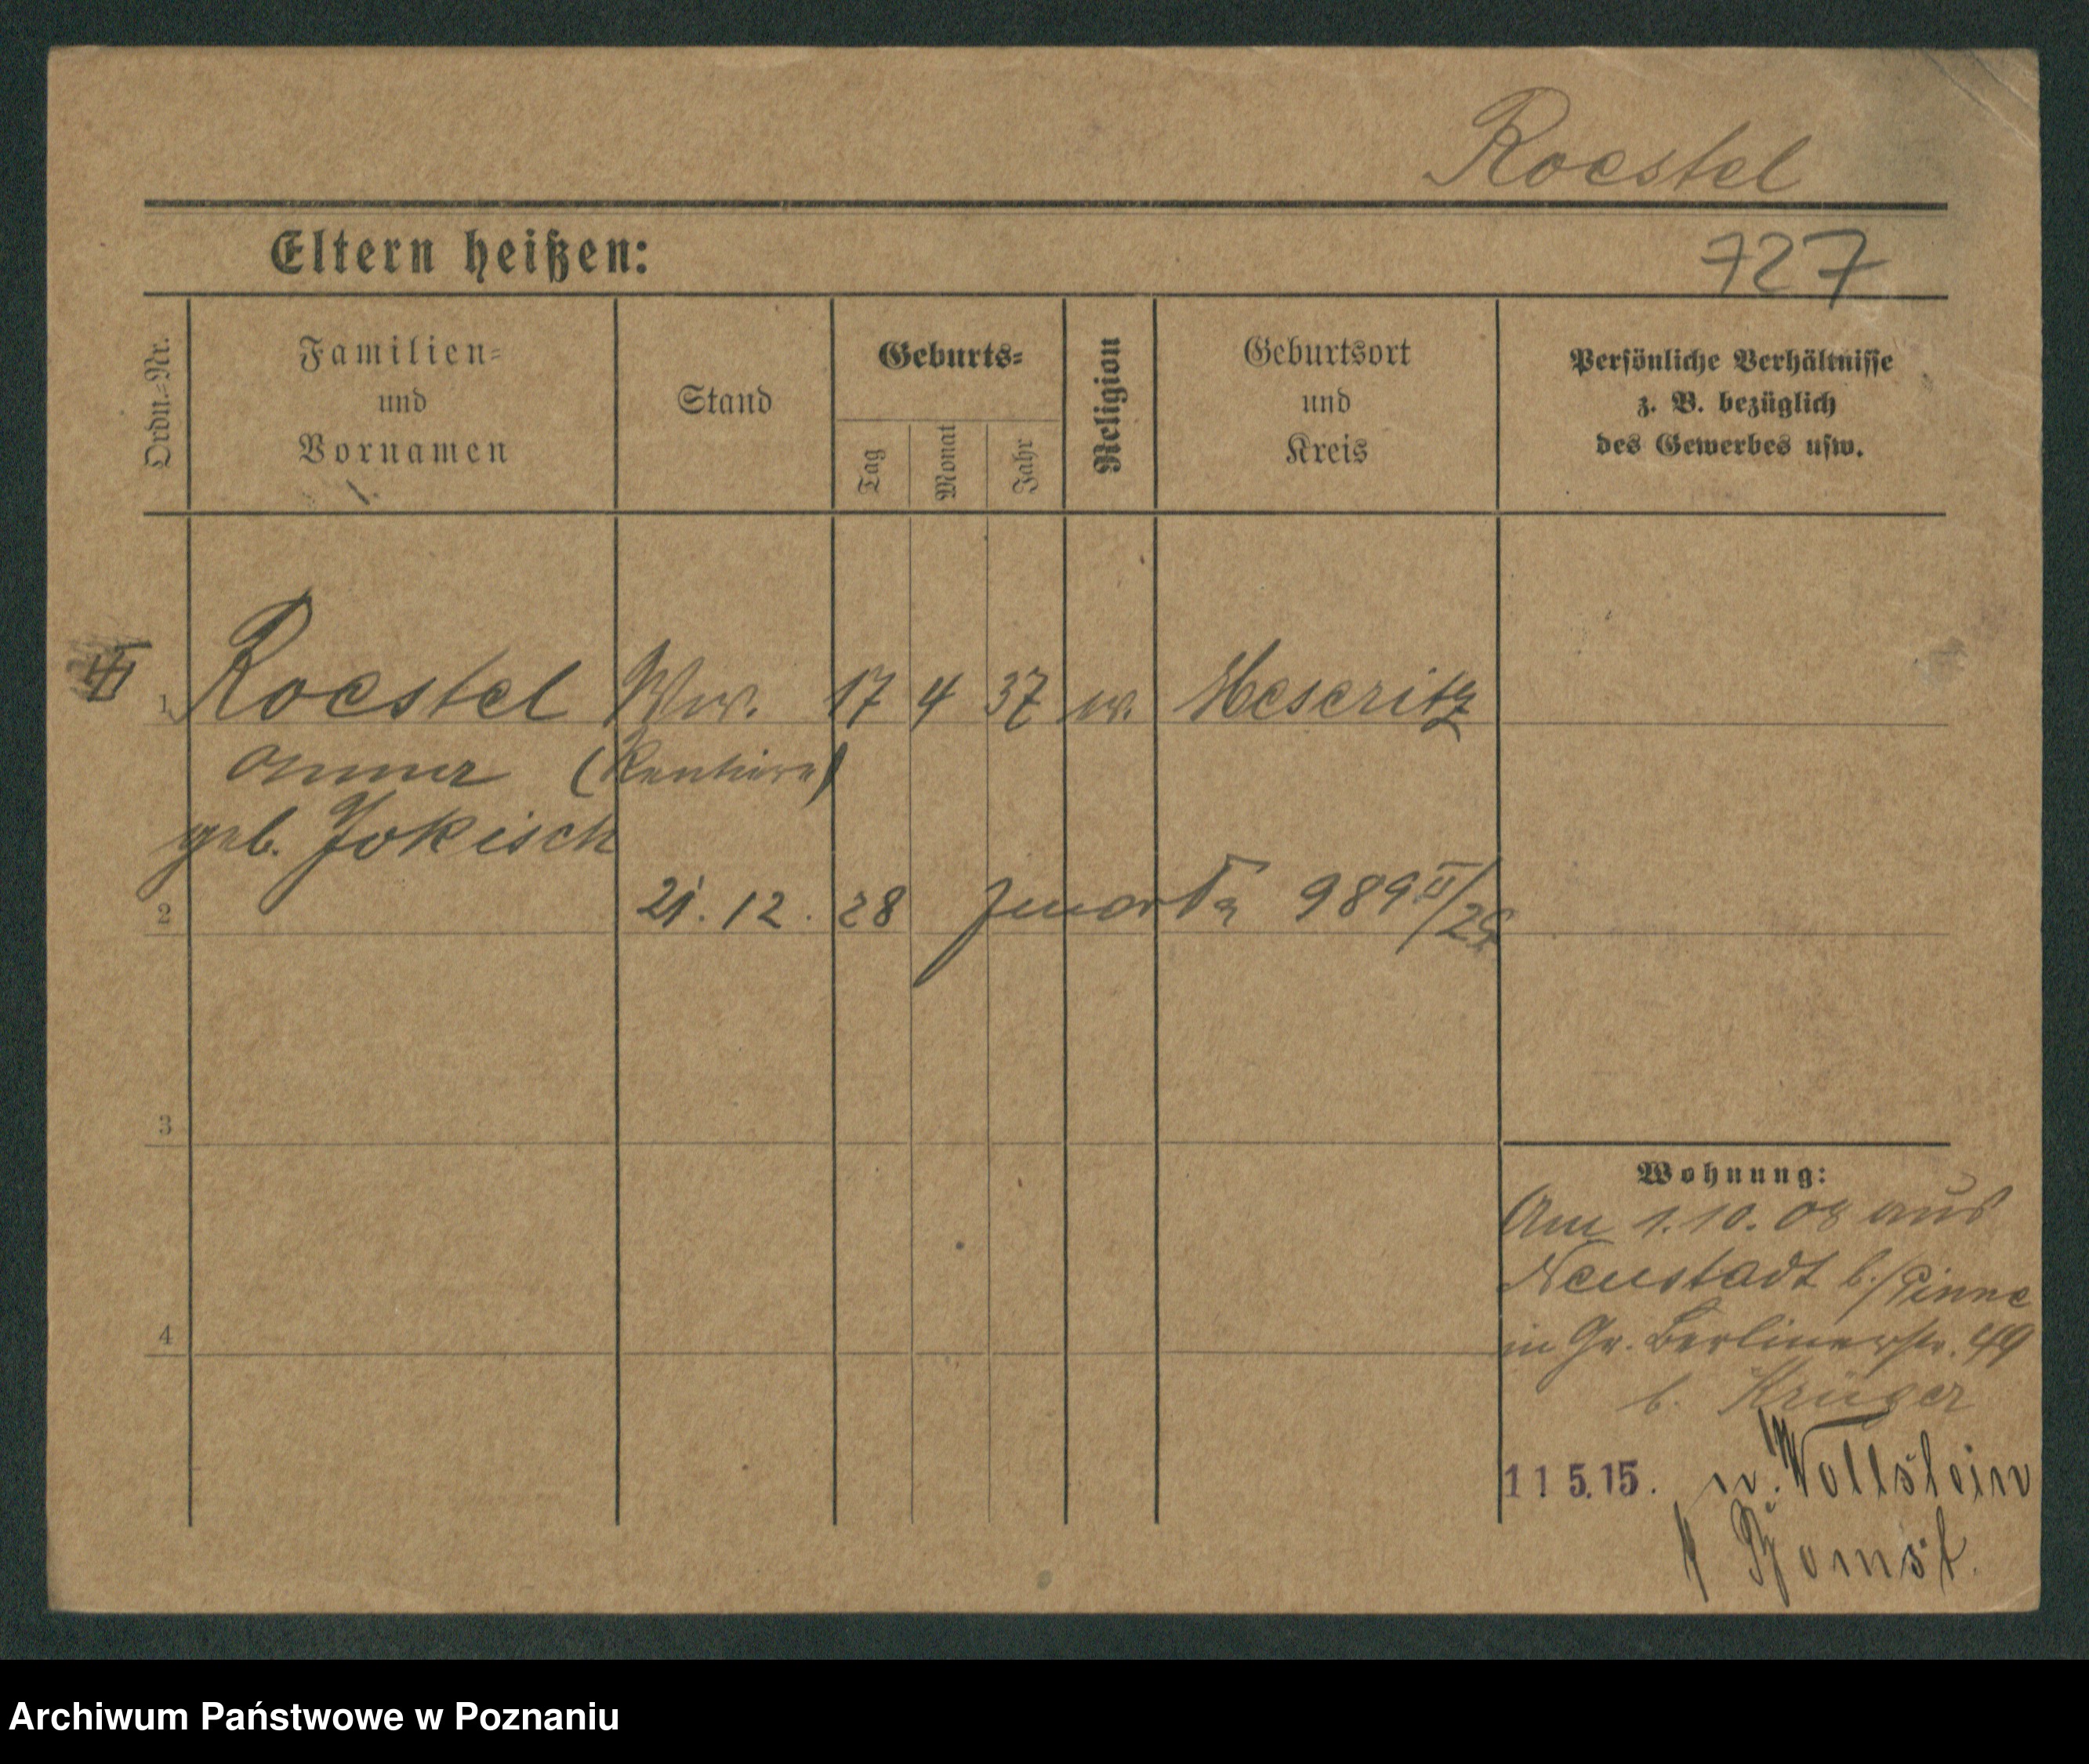 Roestel
Eltern heißen:
727
Ordn.=Nr.
Familien=
und
Vornamen
Stand
Geburts=
Tag
Monat
Jahr
Religion
Geburtsort
und
Kreis
Persönliche Verhältnisse
z. B. bezüglich
des Gewerbes usw.
1 Roestel Ww. 17 4 37 ev. Meseritz
Anna (Rentiere)
geb. Jokisch
2 21. 12. 28 zmarła 989 II/28
3
4
Wohnung:
Am 1.10.08 aus
Neustadt b./Pinne
in Gr. Berlinerstr. 49
b. Krüger
11 5. 15. n. Wollstein
Bomst.
Archiwum Państwowe w Poznaniu